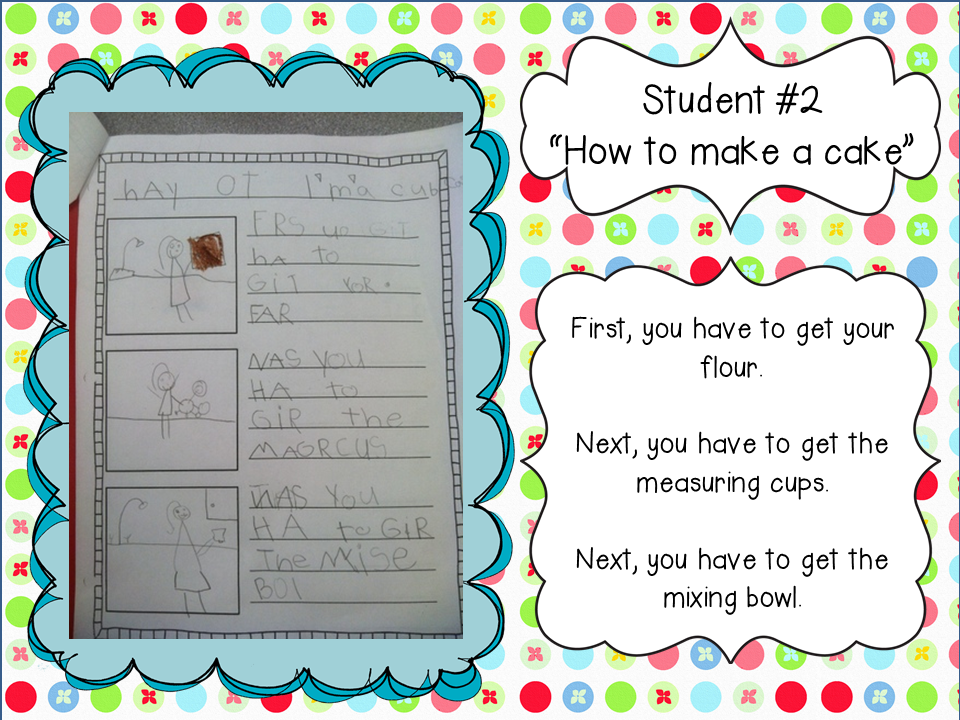 Student #2
“How to make a cake”
hAy OT I'm'a cub
FRS yo GiT
hA to
GiT YOR.
FAR
NAS YOU
HA to
GiR the
MAGRCUS
NAS YOU
HA to GiR
The MXISE
BOl
First, you have to get your
flour.
Next, you have to get the
measuring cups.
Next, you have to get the
mixing bowl.